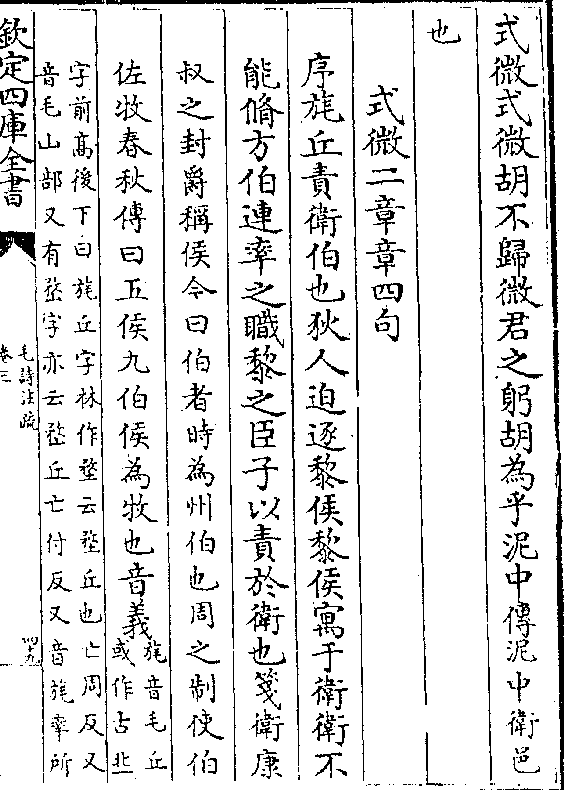 式微式微胡不歸微君之躬胡為乎泥中傳泥中衛邑
也
式微二章章四句
序旄丘責衛伯也狄人迫逐黎侯黎侯寓于衛衛不
能脩方伯連率之職黎之臣子以責於衛也箋衛康
叔之封爵稱侯今曰伯者時為州伯也周之制使伯
佐牧春秋傳曰五侯九伯侯為牧也音義
旄音毛丘
或作古北
字前高後下曰旄丘字林作堥云堥丘也亡周反又
音毛山部又有嵍字亦云嵍丘亡付反又音旄率所
欽定四庫全書
毛詩注疏
卷三
四十九